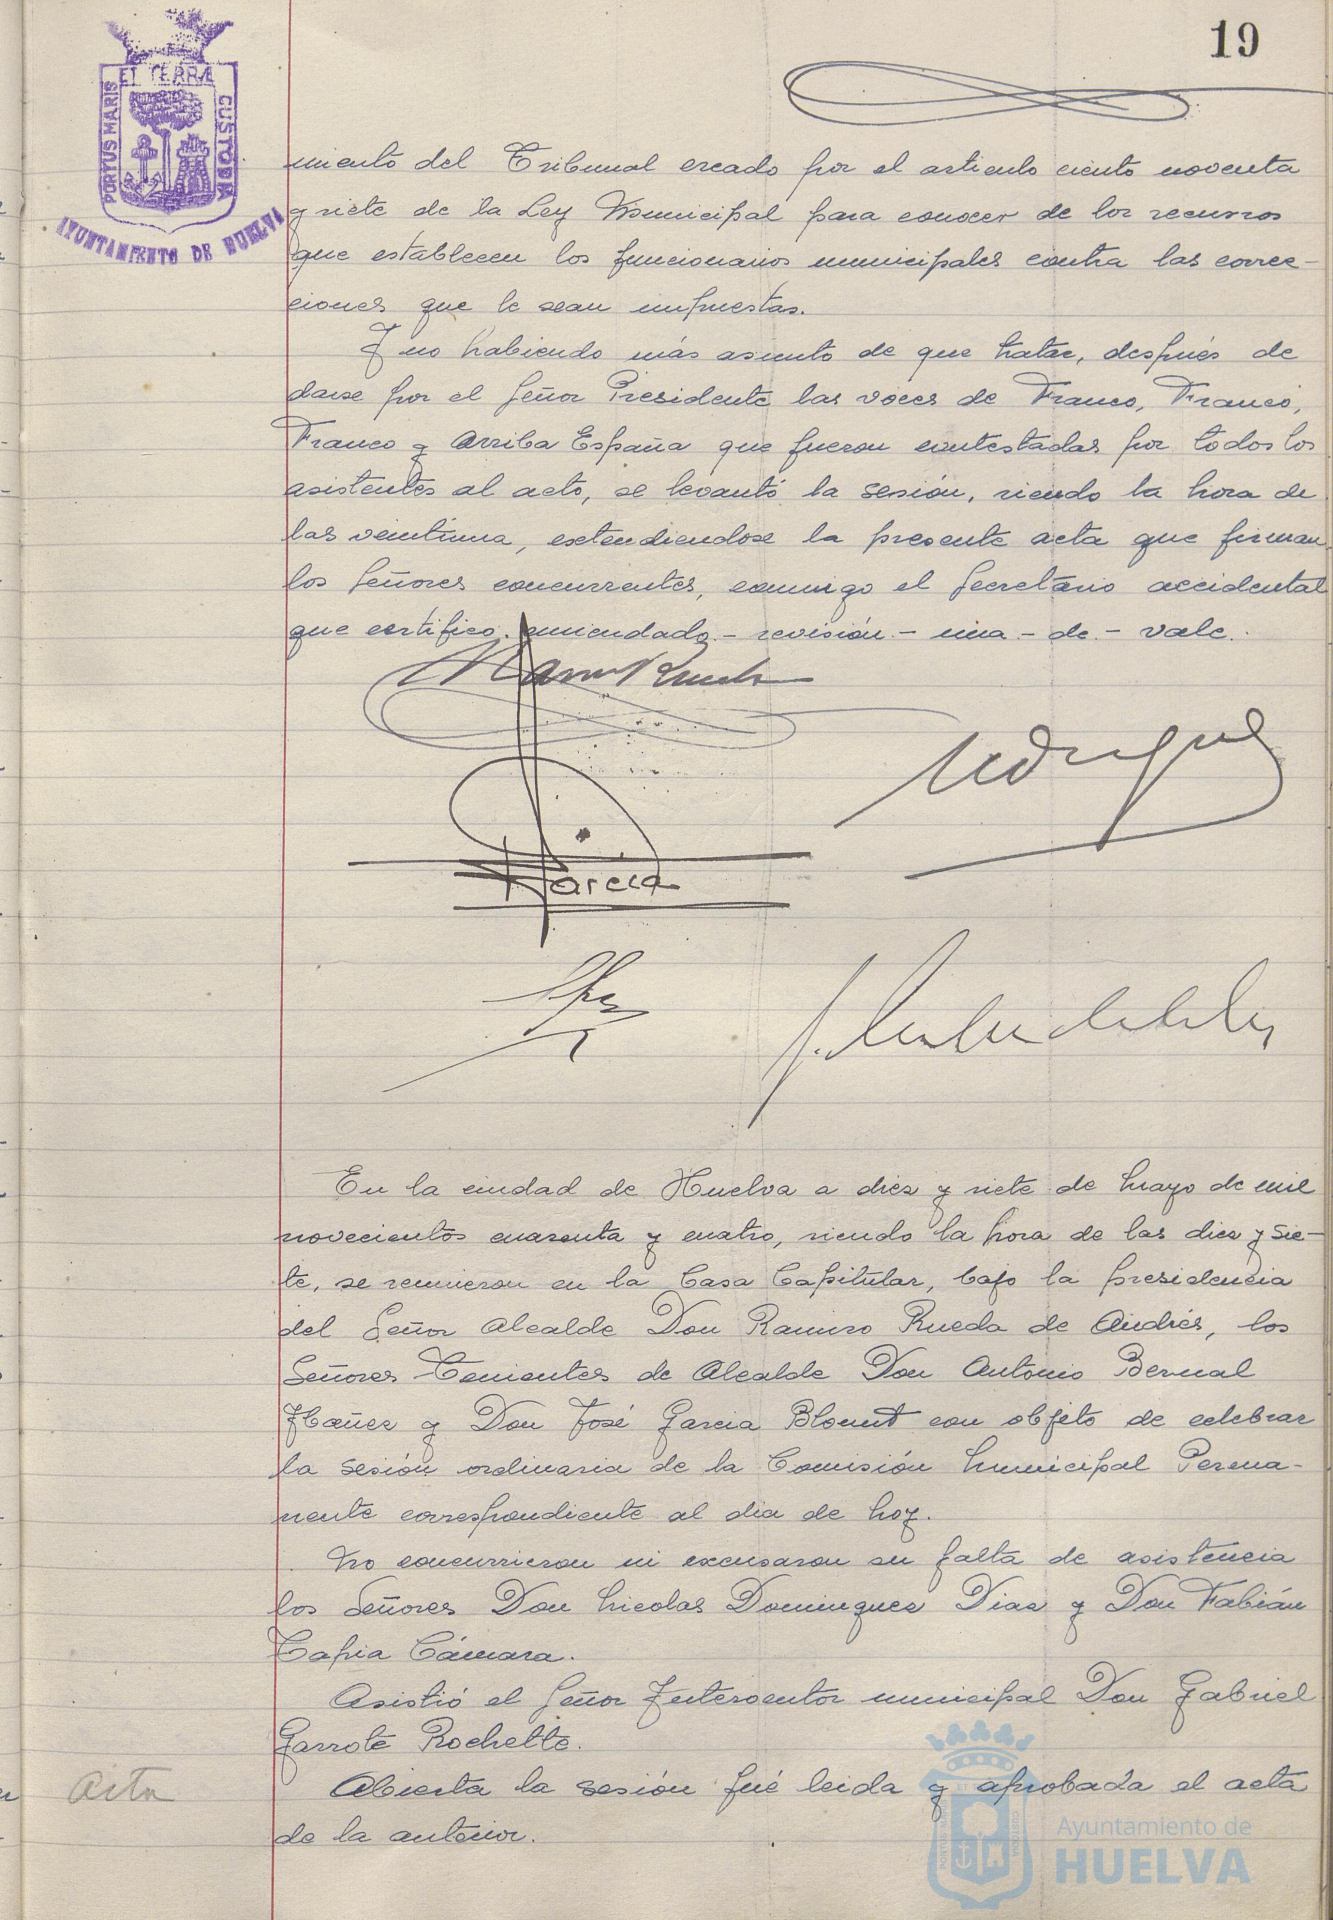 19
ET TERRÆ
PORTUS MARIS
CUSTODIA
AYUNTAMIENTO DE HUELVA
miento del Tribunal creado por el articulo ciento noventa
y siete de la Ley Municipal para conocer de los recursos
que establecen los funcionarios municipales contra las correc-
ciones que le sean impuestas.
Y no habiendo más asunto de que tratar, después de
darse por el Señor Presidente las voces de Franco, Franco,
Franco y Arriba España que fueron contestadas por todos los
asistentes al acto, se levantó la sesión, siendo la hora de
las veintiuna, extendiendose la presente acta que firman
los Señores concurrentes, conmigo el Secretario accidental
que certifico. enmendado.- revisión.- una - de.- vale.-
García
En la ciudad de Huelva a diez y siete de Mayo de mil
novecientos cuarenta y cuatro, siendo la hora de las diez y sie-
te, se reunieron en la Casa Capitular, bajo la presidencia
del Señor Alcalde Don Ramiro Rueda de Andrés, los
Señores Tenientes de Alcalde Don Antonio Bernal
Ibañez y Don José Garcia Blount con objeto de celebrar
la sesión ordinaria de la Comisión Municipal Perma-
nente correspondiente al dia de hoy.
No concurrieron ni excusaron su falta de asistencia
los Señores Don Nicolas Dominguez Diaz y Don Fabián
Tapia Cámara.
Asistió el Señor Interventor municipal Don Gabriel
Garrote Rochette.
Acta
Abierta la sesión fué leida y aprobada el acta
de la anterior.
Ayuntamiento de
HUELVA